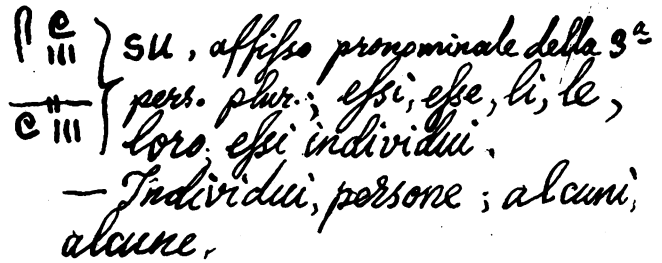 𓋴𓏲𓏥 su, affisso pronominale della 3ª
𓊃𓏲𓏥 pers. plur.; essi, esse, li, le,
loro; essi individui.
— Individui, persone; alcuni,
alcune.